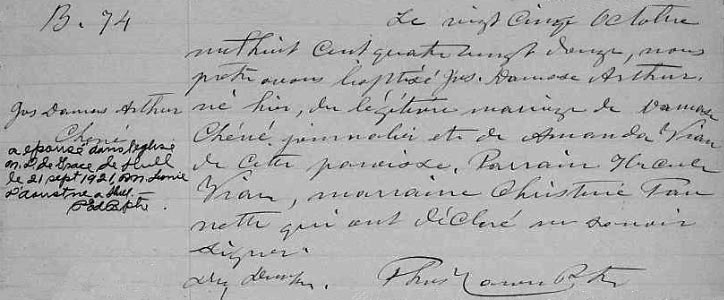 B. 74
Jos Damas Arthur
Chéné
a épousé dans l'église
N. D. de Grace de Hull
le 21 sept 1921, Léonie
Ptre
Le vingt cinq Octobre
mil huit cent quatre vingt douze, nous
prêtre avons baptisé Jos. Damase Arthur,
né hier, du légitime mariage de Damase
Chéné journalier et de Amanda Vian
de cette paroisse. Parrain
Vian, marraine Christine
qui ont déclaré ne savoir
signer.
Ptre